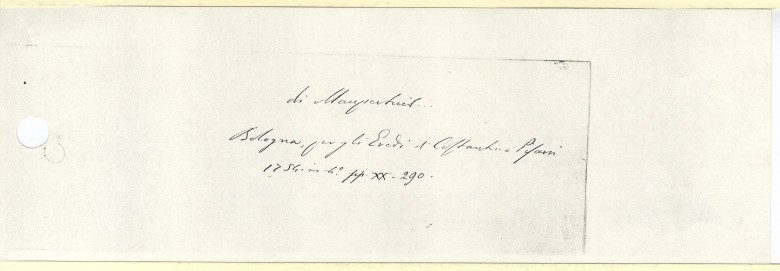 di Maupertuis...
Bologna, per gli Eredi di Costantino Pisarri
1756. in 4.° pp. XX-290.